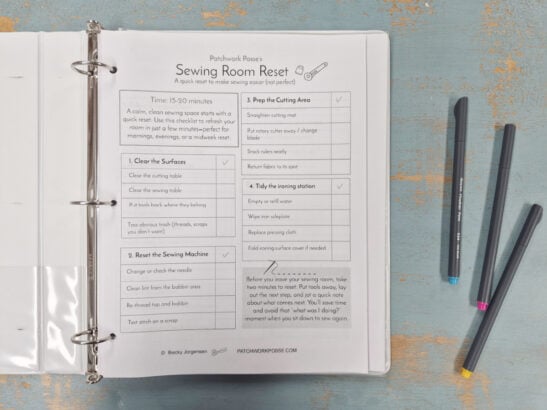 Patchwork Posse's
Sewing Room Reset
A quick reset to make sewing easier (not perfect)
Time: 15-20 minutes
A calm, clean sewing space starts with a
quick reset. Use this checklist to refresh your
room in just a few minutes—perfect for
mornings, evenings, or a midweek reset.
1. Clear the Surfaces
Clear the cutting table
Clear the sewing table
Put tools back where they belong
Toss obvious trash (threads, scraps
you don't want)
2. Reset the Sewing Machine
Change or check the needle
Clean lint from the bobbin area
Re-thread top and bobbin
Test stitch on a scrap
3. Prep the Cutting Area
Straighten cutting mat
Put rotary cutter away / change
blade
Stack rulers neatly
Return fabric to its spot
4. Tidy the ironing station
Empty or refill water
Wipe iron soleplate
Replace pressing cloth
Fold ironing surface cover if needed
Before you leave your sewing room, take
two minutes to reset. Put tools away, lay
out the next step, and jot a quick note
about what comes next. You'll save time
and avoid that "what was I doing?"
moment when you sit down to sew again.
© Becky Jorgensen
PATCHWORKPOSSE.COM